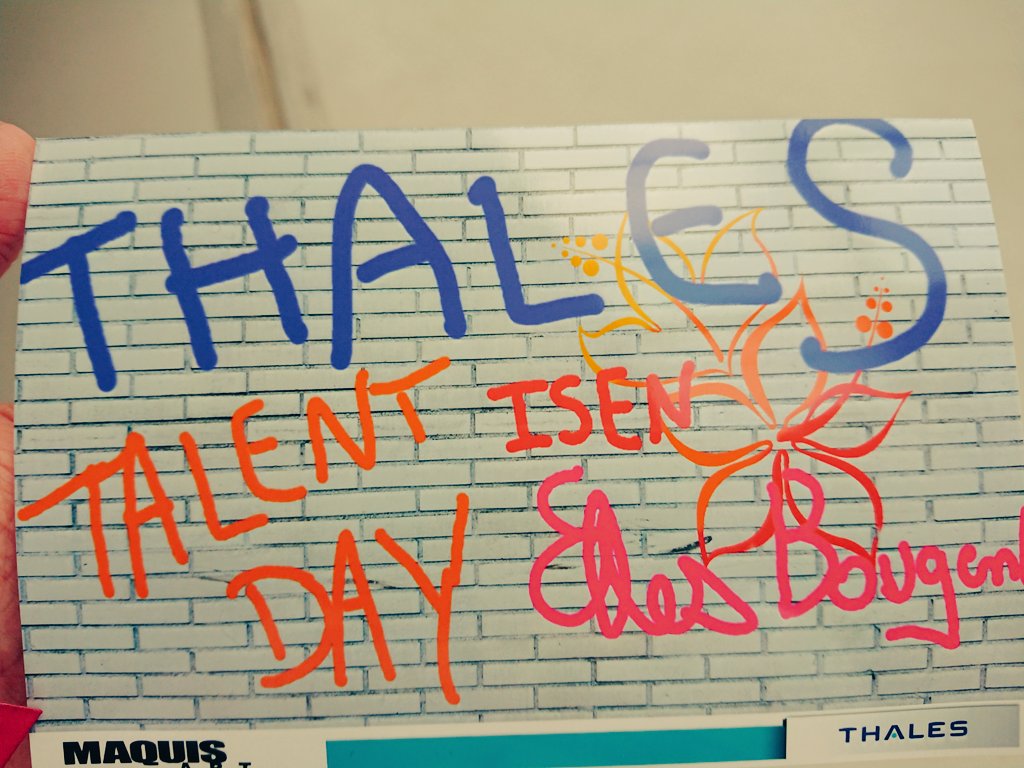 THALES
TALENT ISEN
DAY Elles Bougent
MAQUIS
ART
THALES